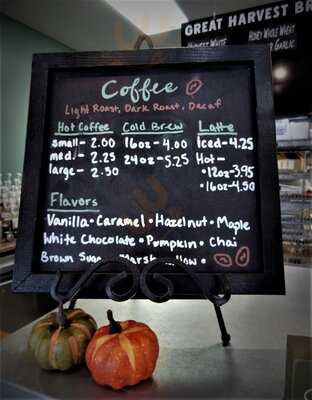 GREAT HARVEST BR
Honey Whole Wheat
Coffee
Light Roast, Dark Roast, Decaf
Hot Coffee
small - 2.00
med. - 2.25
large - 2.50
Cold Brew
16oz - 4.00
24oz - 5.25
Latte
Iced - 4.25
Hot -
• 12oz - 3.95
• 16oz - 4.50
Flavors
Vanilla • Caramel • Hazelnut • Maple
White Chocolate • Pumpkin • Chai
Brown